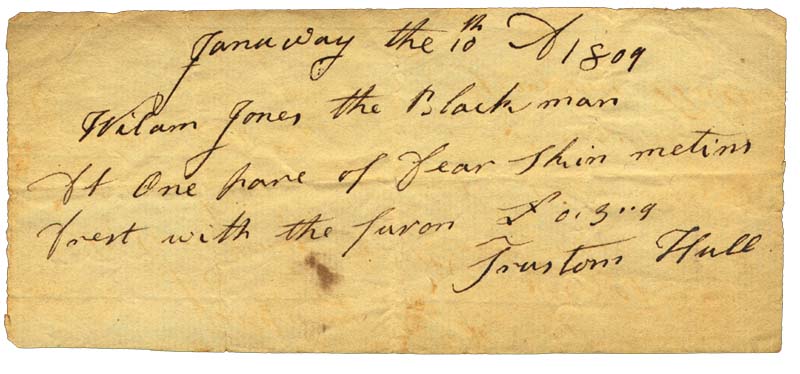 Januway the 10th A 1809
Wilam Jones the Black man
Dt One pare of dear skin metins
drest with the furon £0:3:9
Trustom Hull